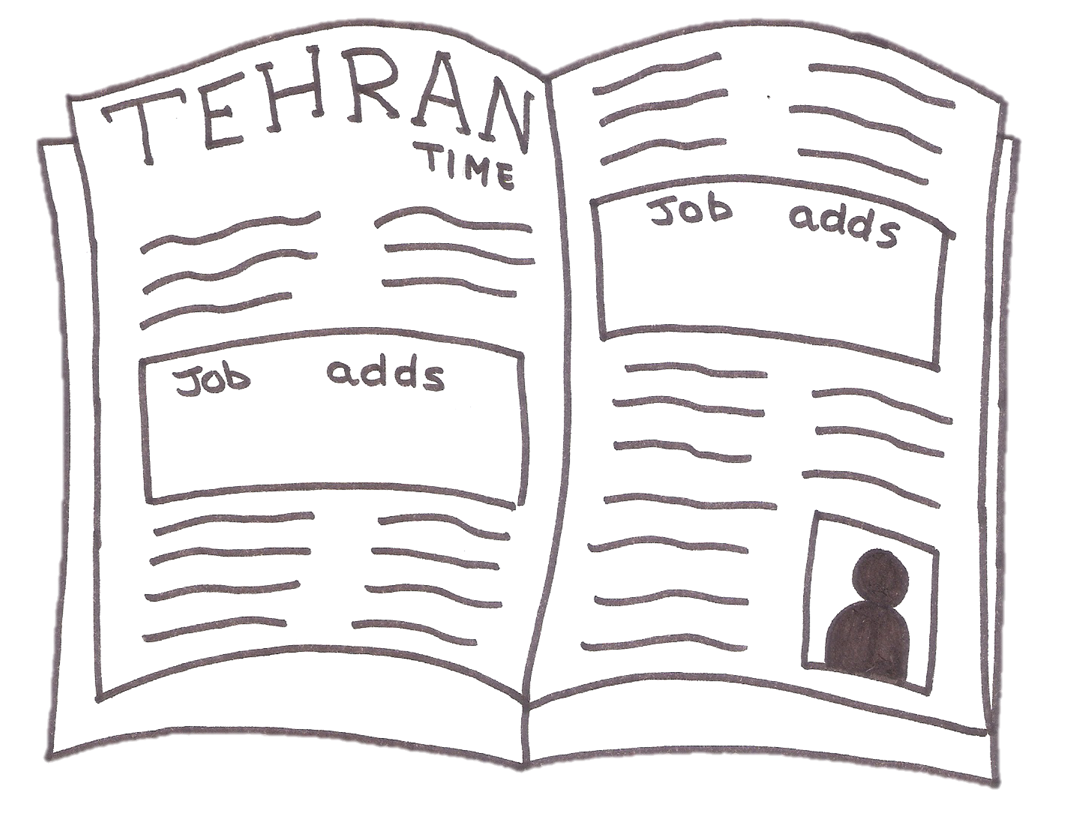 TEHRAN
TIME
Job adds
Job adds